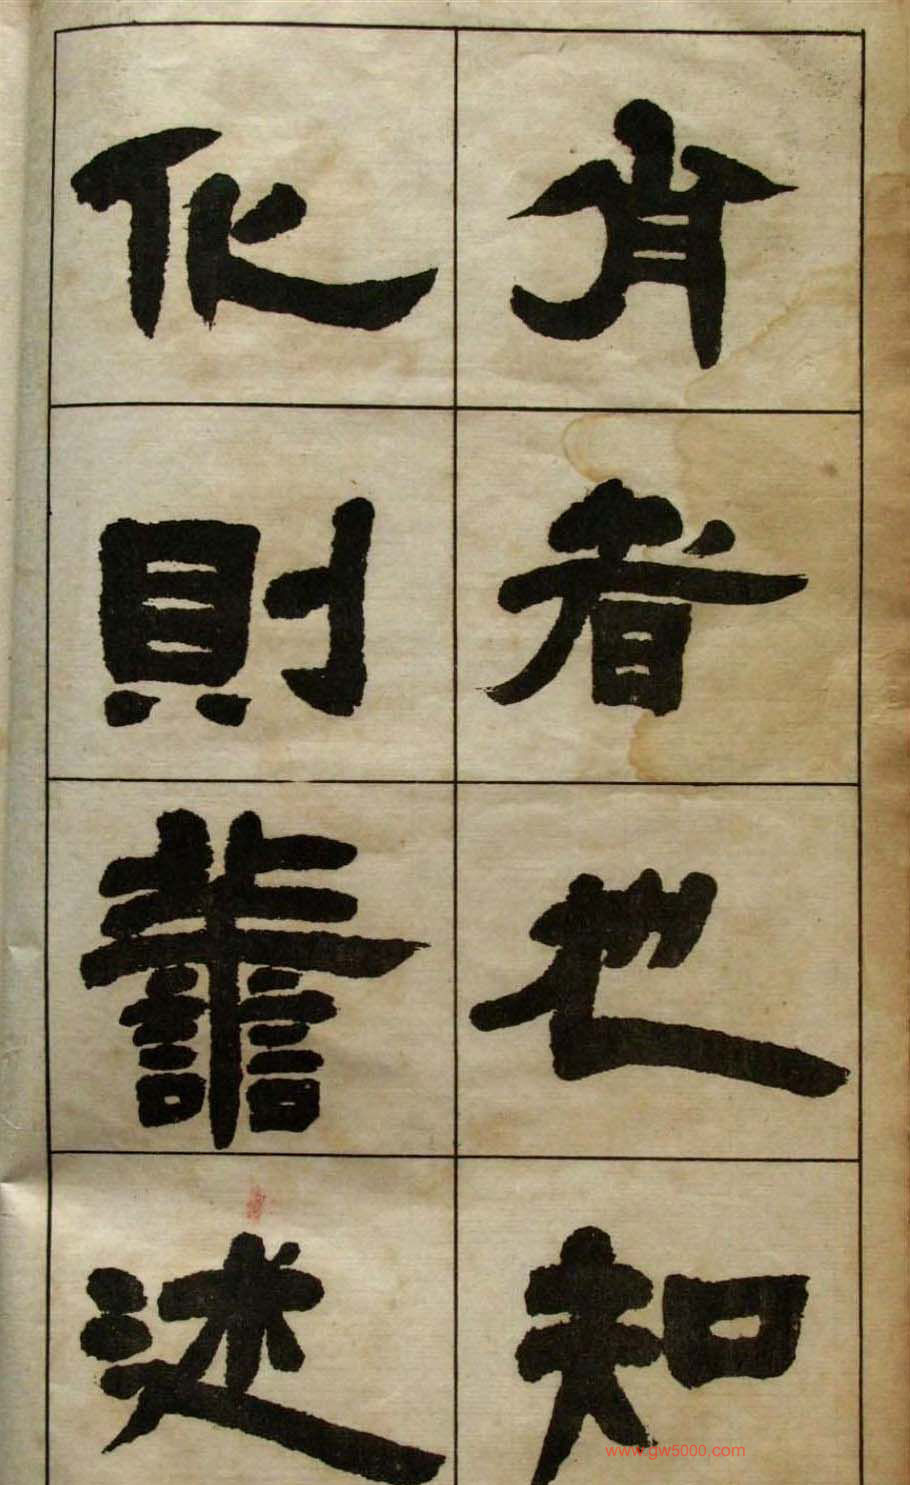 肖者也知
化則譱述
www.gw5000.com